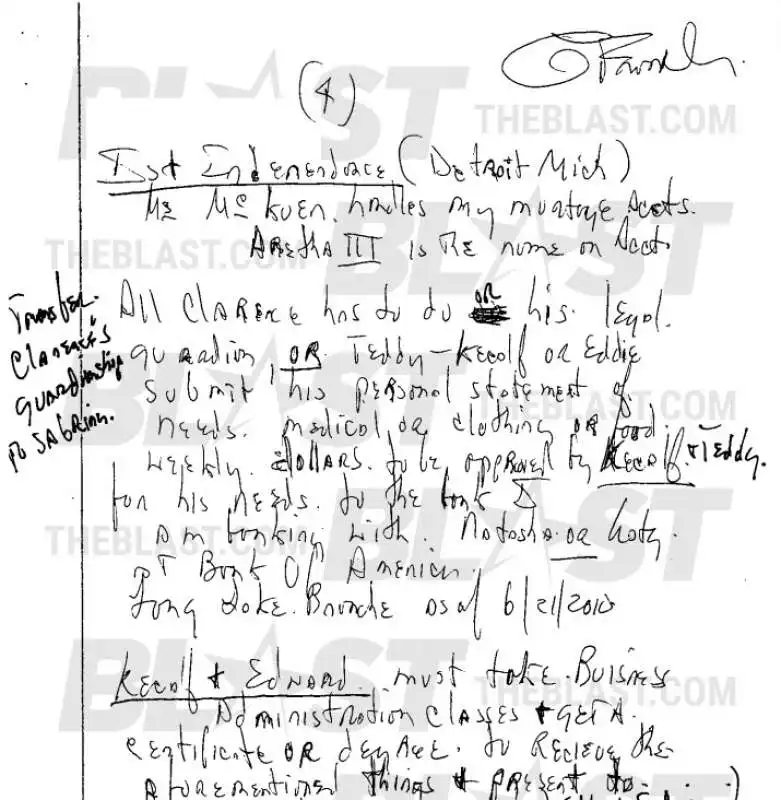 (4)
1st Independence (Detroit Mich)
Mr Mc Kuen. handles my mortage Accts.
Aretha III is the name on Acct
All Clarence has to do or his legal.
guardian, or Teddy-Kecalf or Eddie
submit his personal statement of
needs. medical or clothing or food.
weekly. dollars. to be approved by Kecalf. + Teddy.
for his needs. to the bank I
am banking with. Natosha or Katy.
at Bank Of America.
Long Lake. Branche as of 6/21/2010
Transfer.
Clarence's
guardianship
to Sabrina.
Kecalf + Edward. must take. Buisness
Administration classes + get A.
certificate or degree. to Recieve the
aforementioned things + present to
THEBLAST.COM
BLAST
THEBLAST.COM
THEBLAST.COM
BLAST
THEBLAST.COM
BLAST
THEBLAST.COM